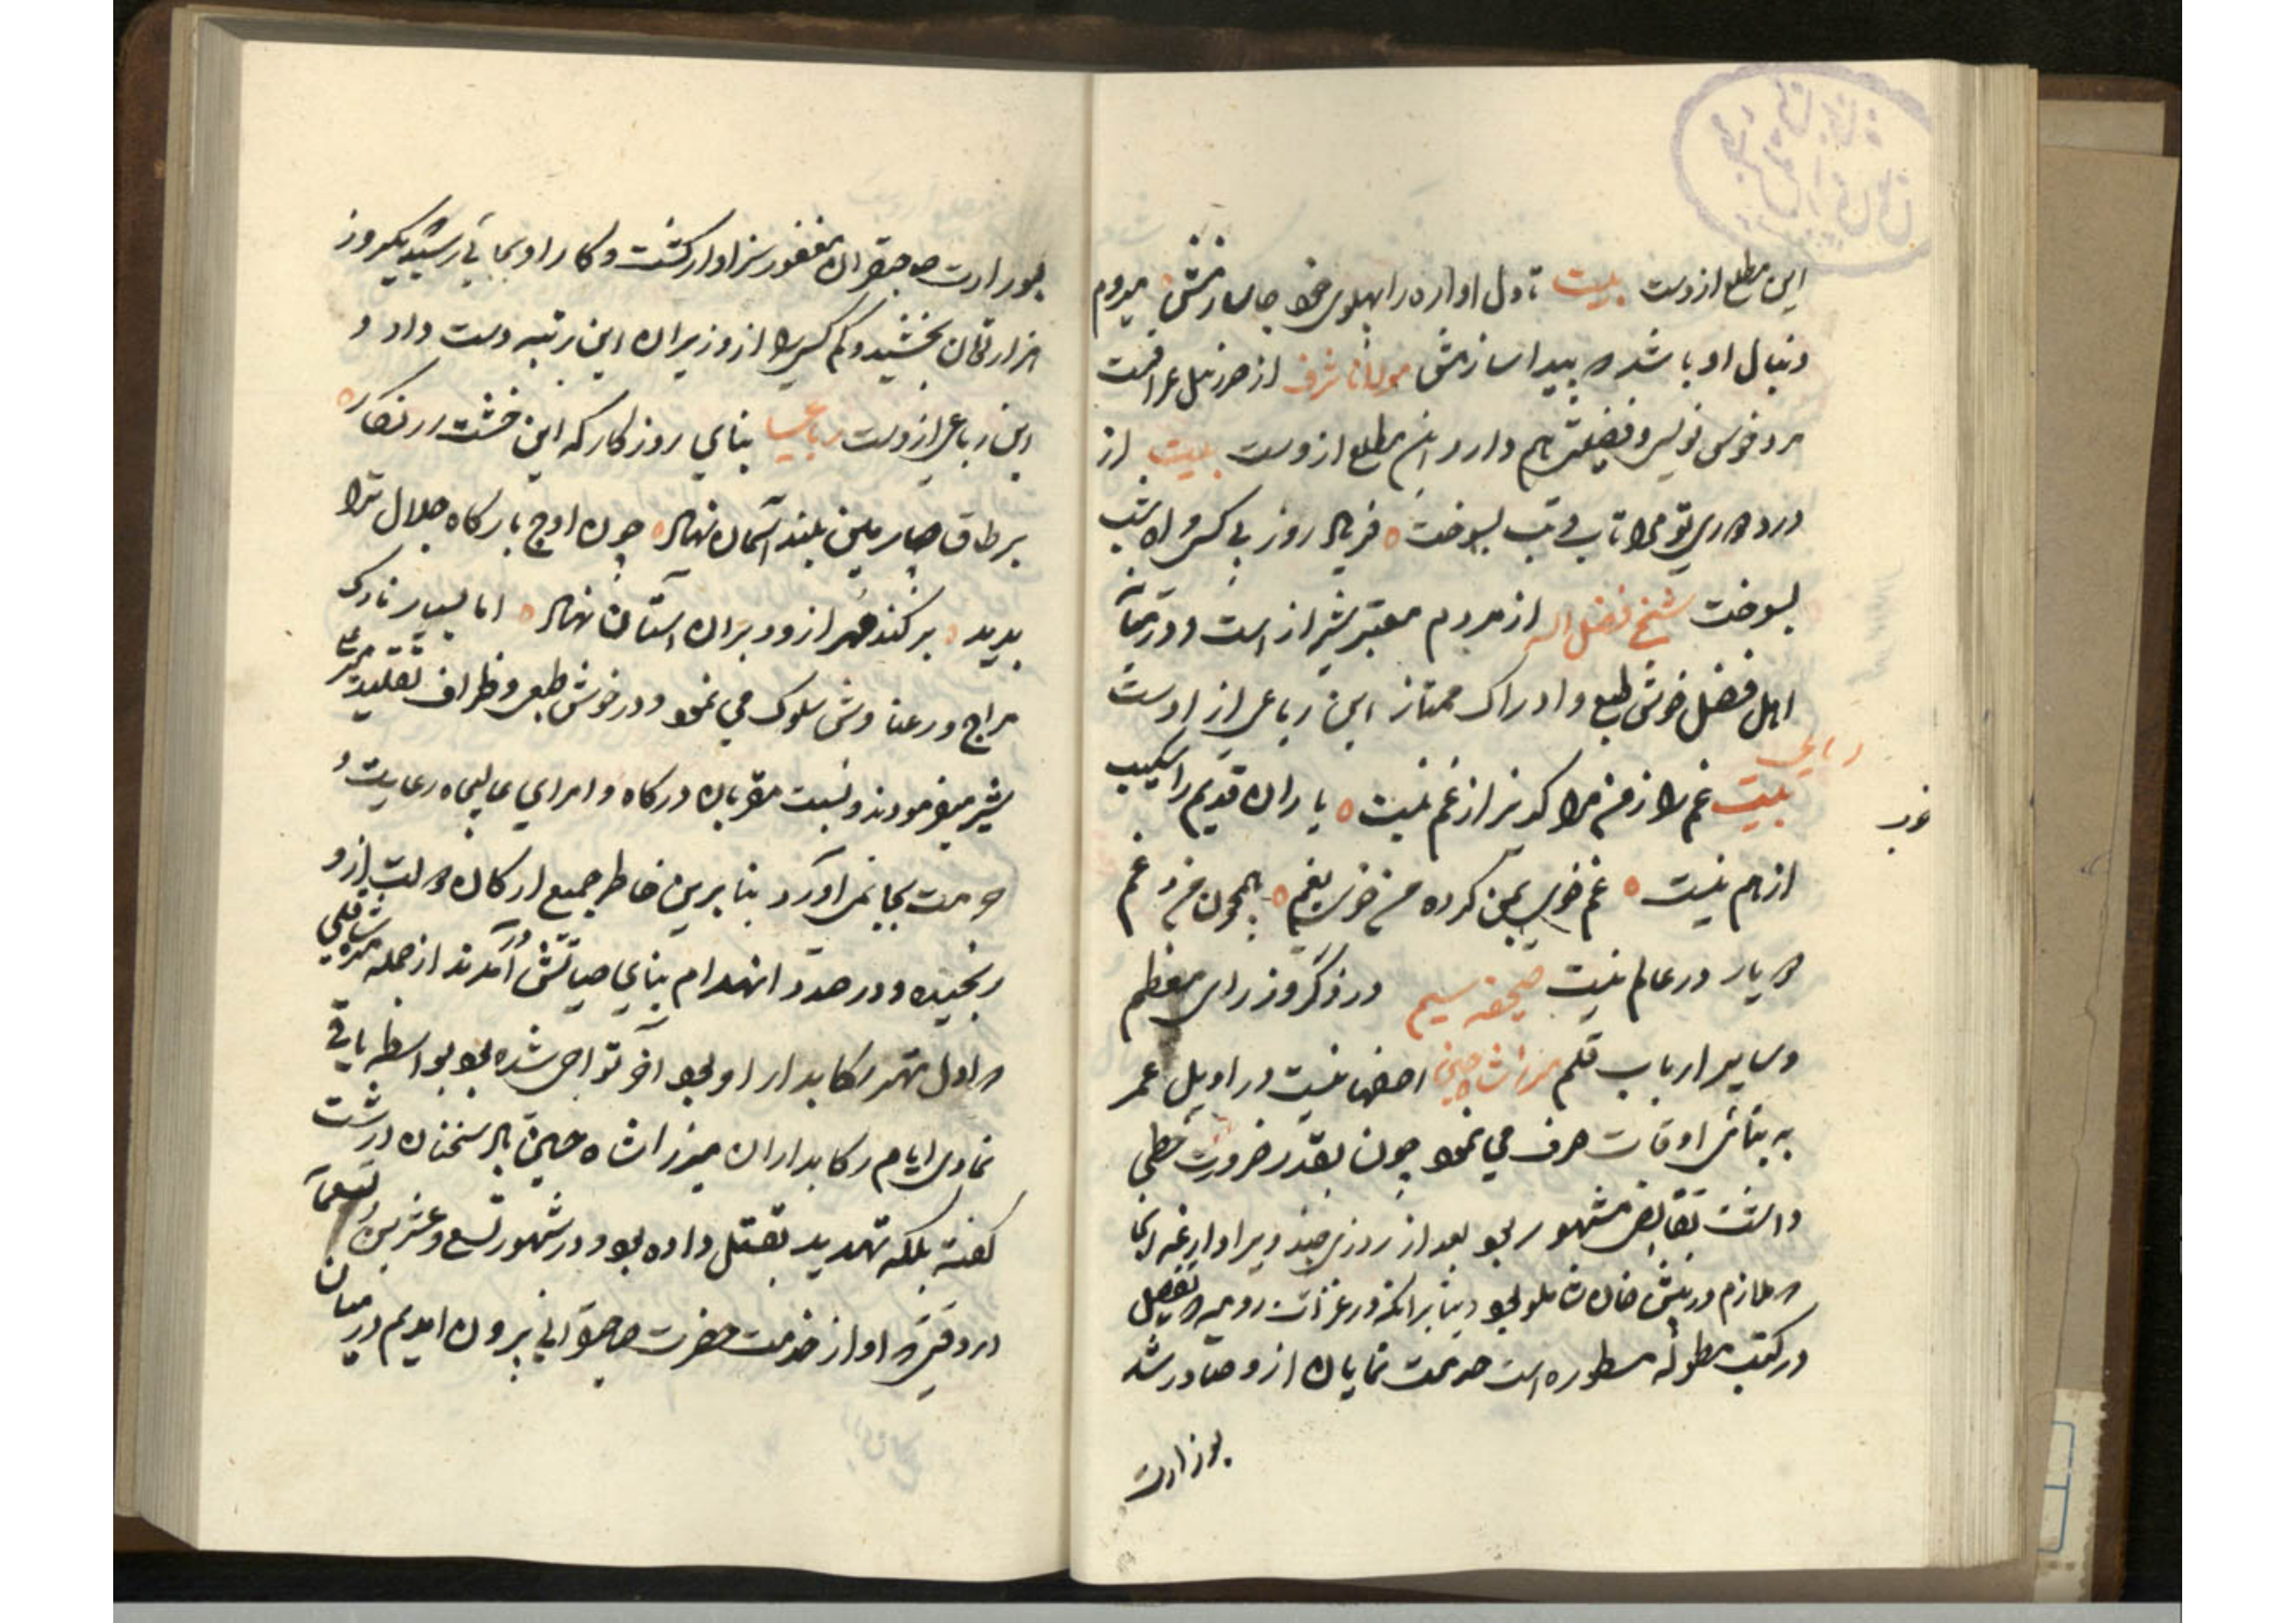 این مطلع ازوست بیت تا دل اواره را پهلوی خود جا سازمش میروم
دنبال او باشد که پیدا سازمش مولانا شرف از
مرد خوش نویس و فضیلت هم دارد این مطلع ازوست بیت از
درد دوری تو مرا تاب و تب بسوخت فریاد روز بی کسی و اه شب
بسوخت شیخ فضل اله از مردم معتبر شیراز است و در
اهل فضل خوش طبع و ادراک ممتاز این رباعی از اوست
رباعی
بیت غم را ز من مرا گریز از غم نیست یاران قدیم را شکیب
از هم نیست غم خوی بمن کرده من خوی بغم همچون من و غم
دو یار در عالم نیست صحیفه سیم در ذکر وزرای معظم
و سایر ارباب قلم میرزا شاه حسین اصفهانیست در اوایل عمر
به بنائی اوقات صرف می نمود چون بقدر ضرورت خطی
داشت مشهور بود بعد از روزی چند ویرا داروغه انجا
که ملازم درمش خان شاملو بود بنا برانکه در غزات رومیه که تفصیل
در کتب مطوله مسطوره است خدمت نمایان ازو صادر شد
بوزارت
بوزارت صاحبقران مغفور سزاوار گشت و کار او بجایی رسید که یکروز
هزار تومان بخشید و کم کسی را از وزیران این رتبه دست داد و
این رباعی ازوست رباعی بنای روزگار که این خشت زرنگار
بر طاق چارمین بلند آسمان نهاد چون اوج بارگاه جلال ترا
بدید برکند مهر ازو و بران استان نهاد اما بسیار نازک
مزاج و رعنا وش سلوک می نمود و در خوش طبعی و ظرافت تقلید میر علی
شیر میفرمودند و نسبت مقربان درگاه و امرای عالیجاه رعایت و
حرمت بجا نمی اورد بنا برین خاطر جمیع ارکان دولت ازو
رنجیده و در صدد انهدام بنای حیاتش در آمدند از جمله مهتر شاهقلی
که اول مهتر رکابدار او بود آخر تواچی شده بود بواسطه باقی
نمادی ایام رکابداران میرزا شاه حسین باو سخنان درشت
گفته بلکه تهدید بقتل داده بود و در شهور تسع و عشرین و تسعمآ
در وقتی که او از خدمت حضرت صاحبقرانی برون امدیم در میان